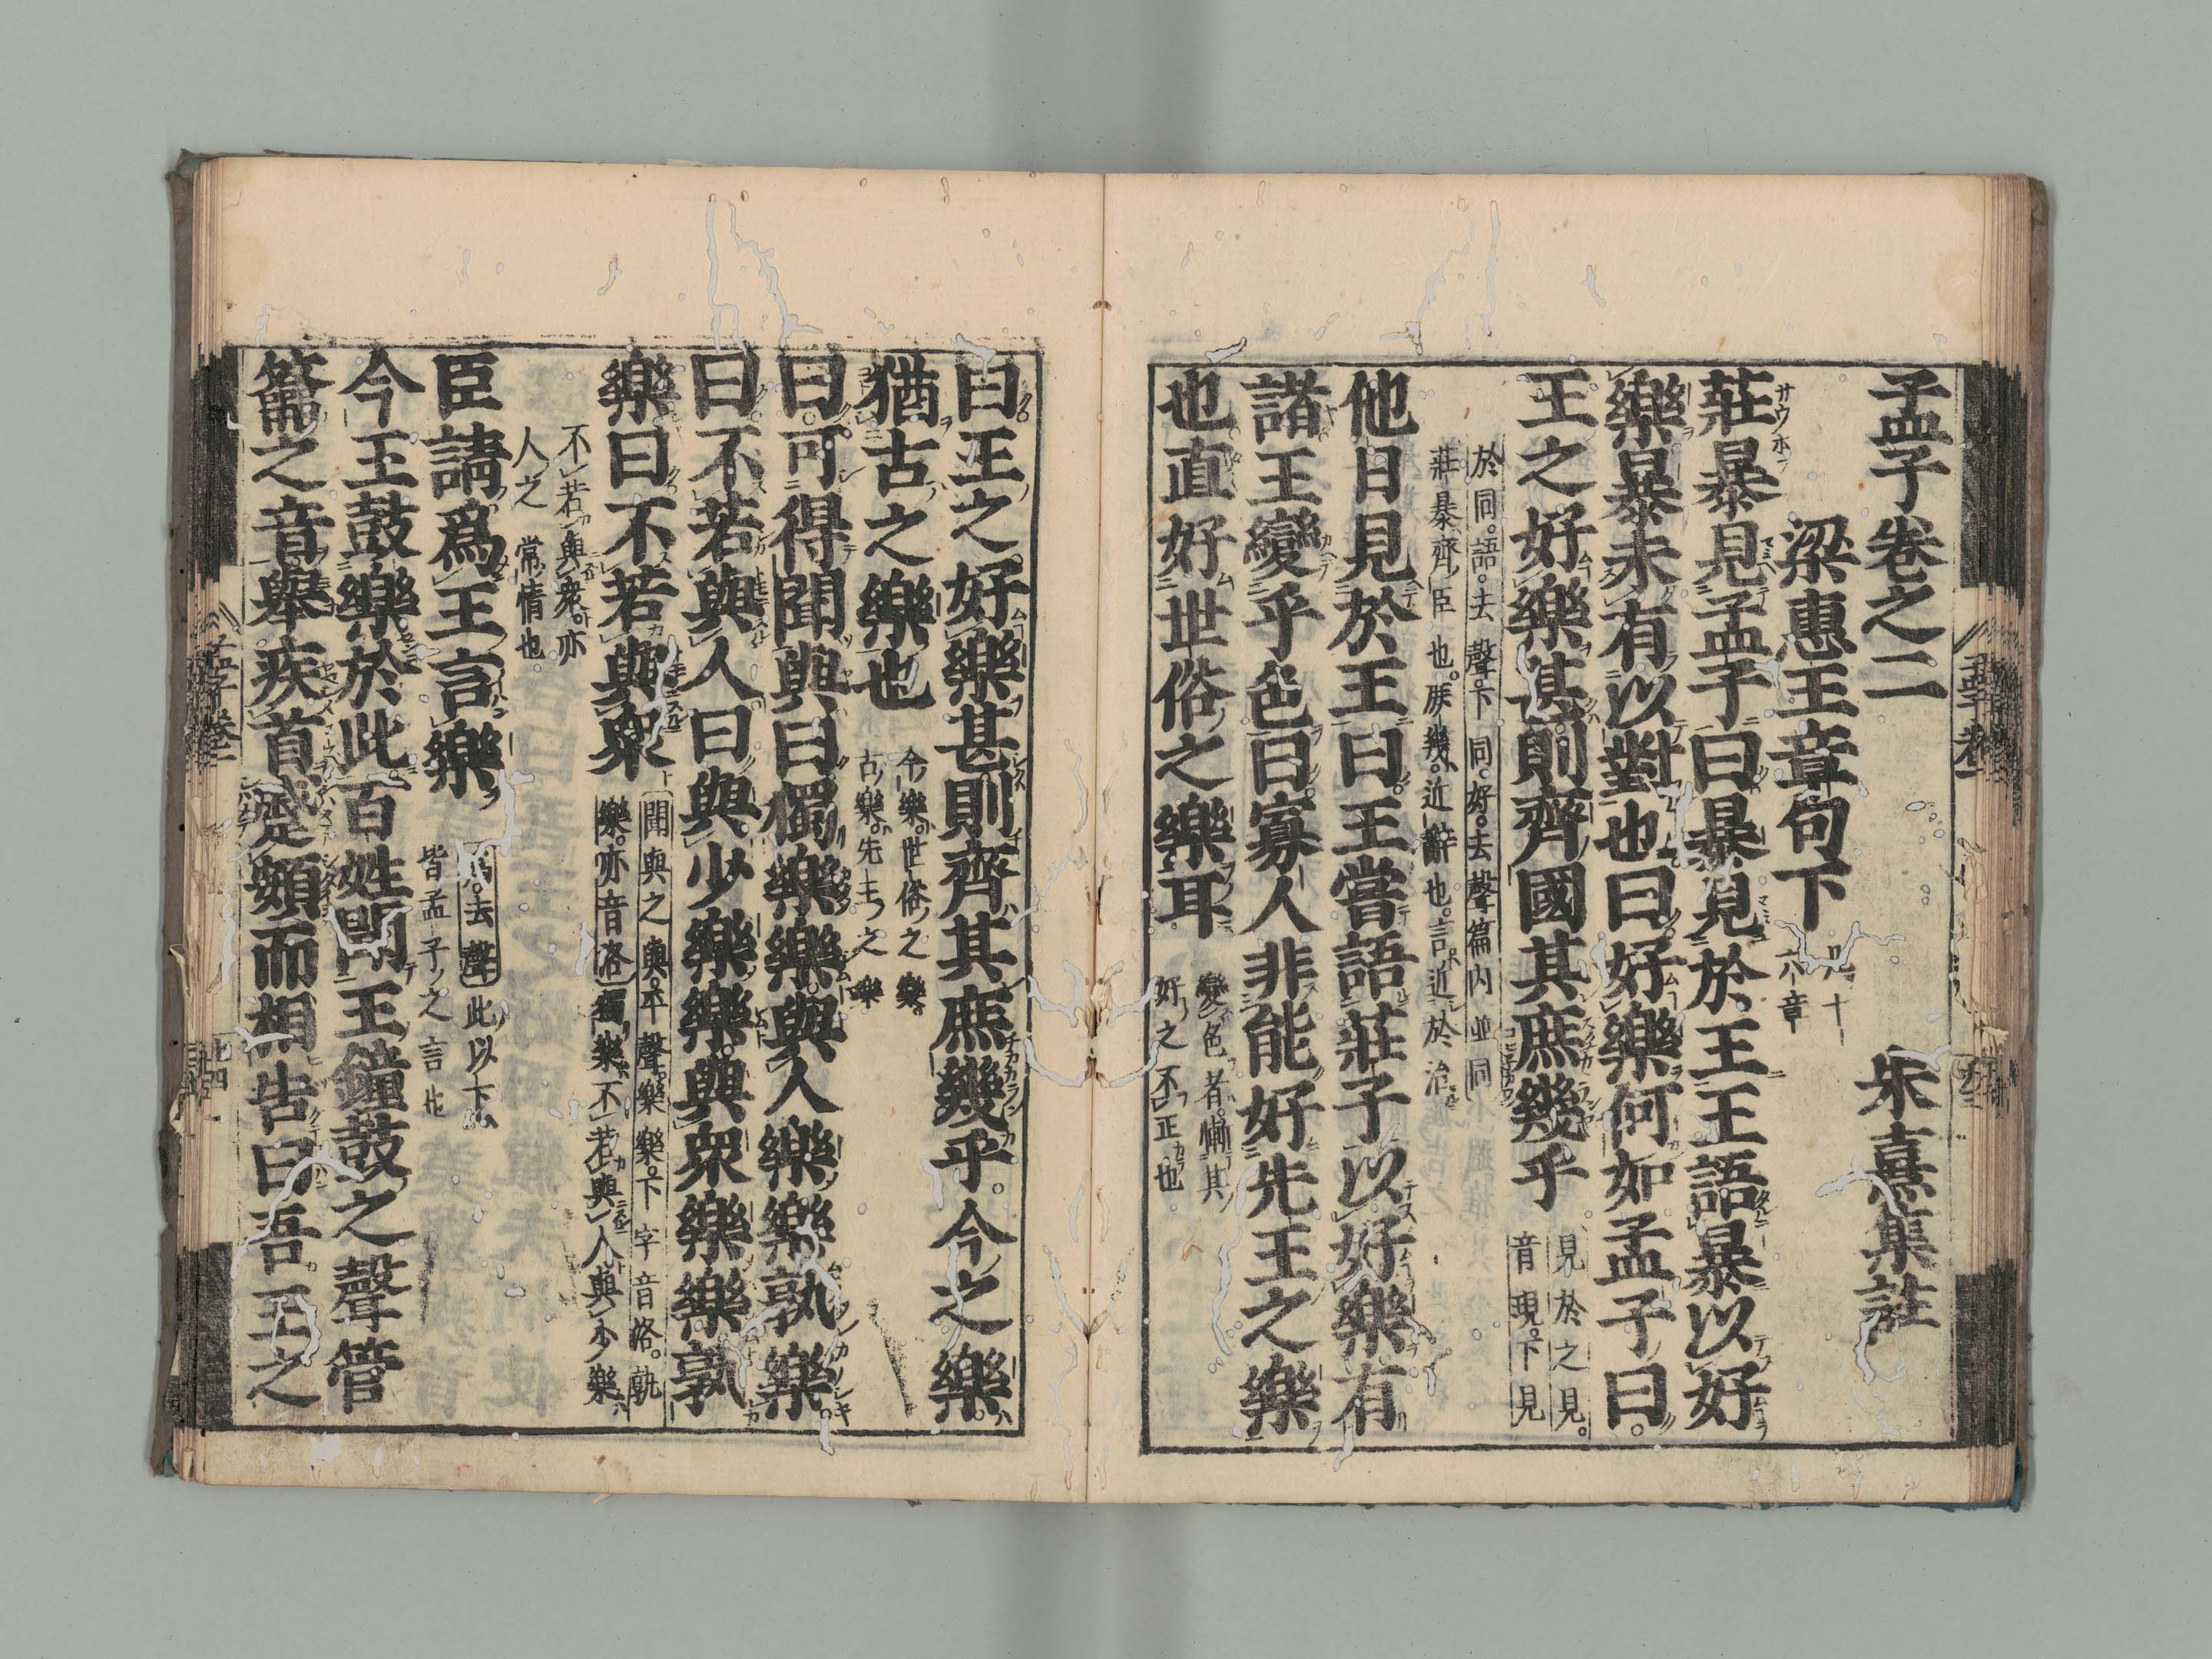 孟子卷之二　朱熹集註
梁惠王章句下　凡十
六章
莊暴見孟子曰暴見於王王語暴以好
樂暴未有以對也曰好樂何如孟子曰
王之好樂甚則齊國其庶幾乎　見於之見
音現下見
於同語去聲下同好去聲篇內並同
莊暴齊臣也庶幾近辭也言近於治
他日見於王曰王嘗語莊子以好樂有
諸王變乎色曰寡人非能好先王之樂
也直好世俗之樂耳　變色者慚其
好之不正也
曰王之好樂甚則齊其庶幾乎今之樂
猶古之樂也　今樂世俗之樂
古樂先王之樂
曰可得聞與曰獨樂樂與人樂樂孰樂
曰不若與人曰與少樂樂與衆樂樂孰
樂曰不若與衆　聞與之與平聲樂樂下字音洛孰
樂亦音洛獨樂不若與人與少樂
不若與衆亦
人之常情也
臣請爲王言樂　爲去聲此以下
皆孟子之言也
今王鼓樂於此百姓聞王鐘鼓之聲管
籥之音舉疾首蹙頞而相告曰吾王之
孟子卷二